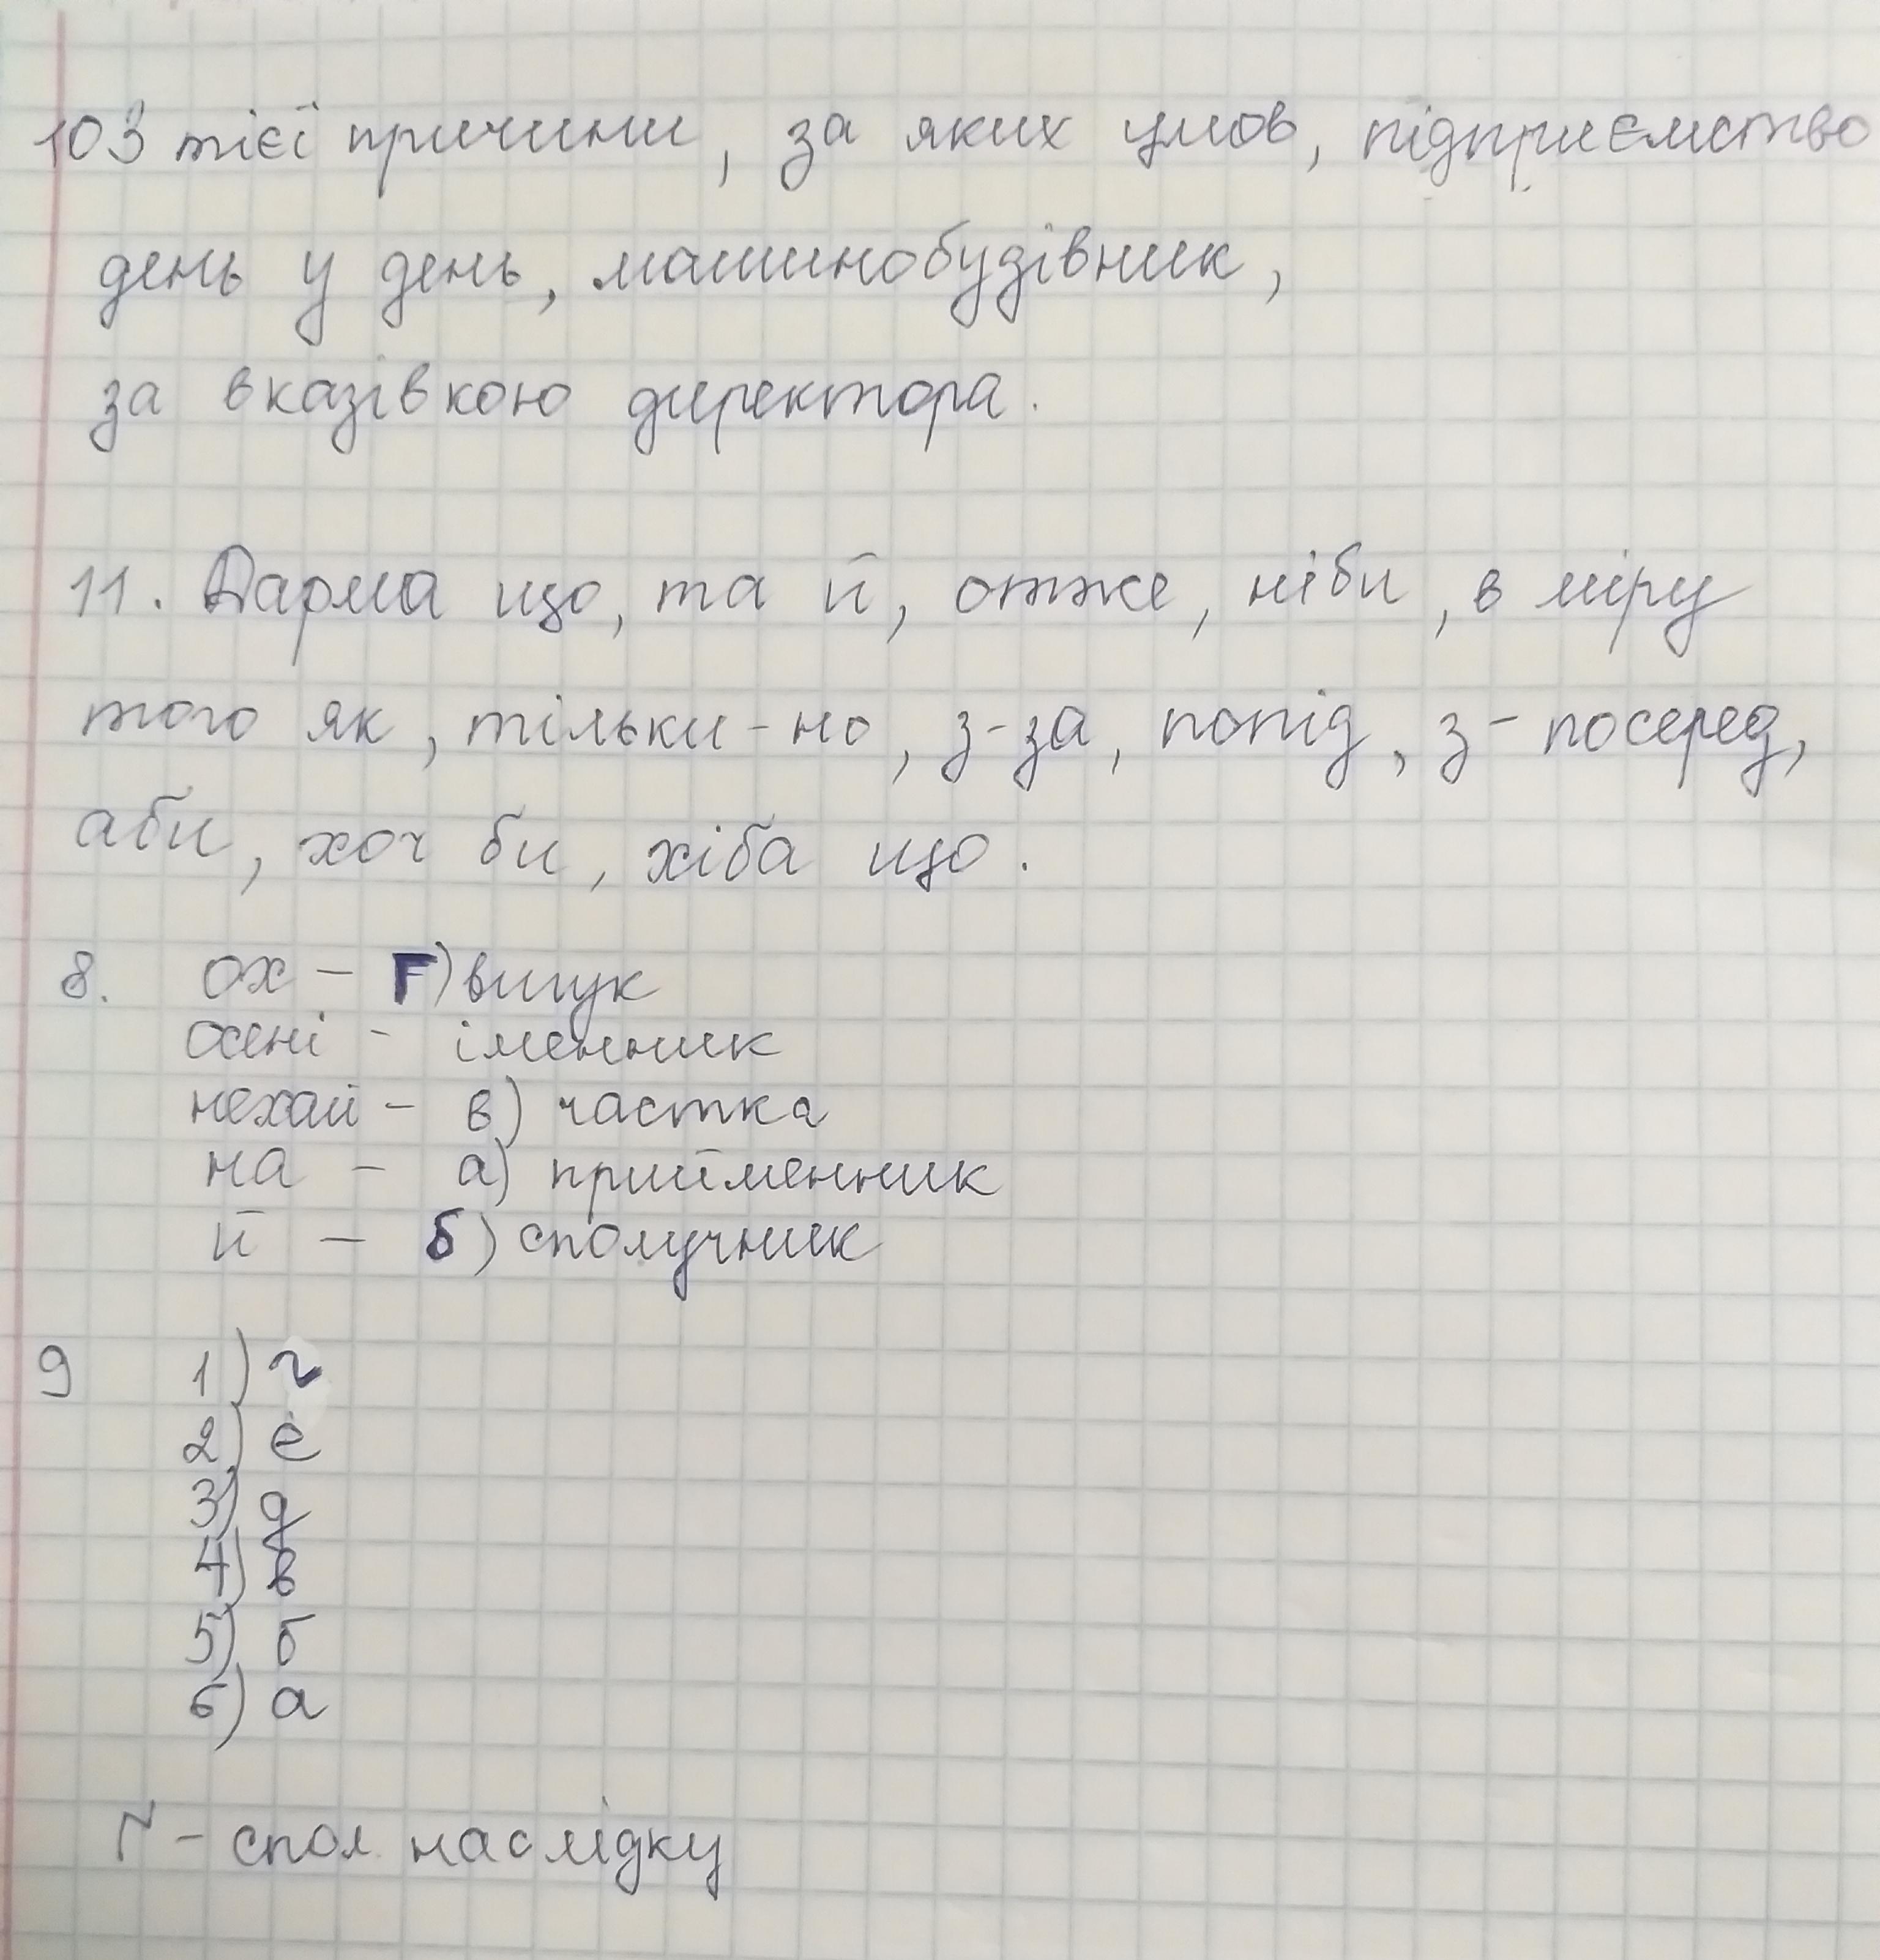 10 З тієї причини, за яких умов, підприємство
день у день, машинобудівник,
за вказівкою директора.
11. Дарма що, та й, отже, ніби, в міру
того як, тільки-но, з-за, попід, з-посеред,
аби, хоч би, хіба що.
8. ох – Г) вигук
осені - іменник
нехай – в) частка
на – а) прийменник
й – б) сполучник
9 1) г
2) е
3) д
4) в
5) б
6) а
Ґ – спол. наслідку